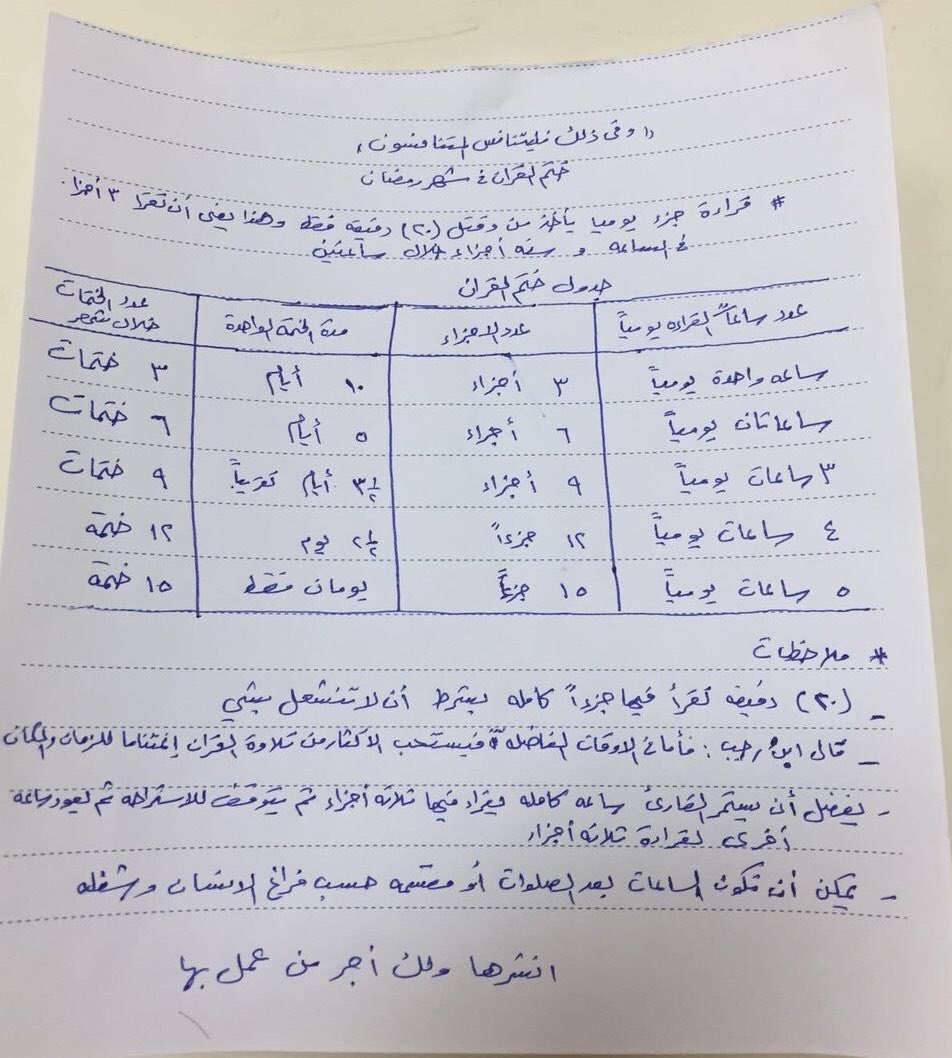 ( وفي ذلك فليتنافس المتنافسون )
ختم القران في شهر رمضان
* قراءة جزء يوميا يأخذ من وقتك (٢٠) دقيقه فقط وهذا يعني أن تقرا ٣ أجزاء
في الساعه و سته أجزاء خلال ساعتين
جدول ختم القران
عدد ساعات القراءه يومياً | عدد الاجزاء | مدة الختمة الواحدة | عدد الختمات خلال شهر
ساعه واحدة يومياً | ٣ أجزاء | ١٠ أيام | ٣ ختمات
ساعاتان يومياً | ٦ أجزاء | ٥ أيام | ٦ ختمات
٣ ساعات يومياً | ٩ أجزاء | ٣½ أيام تقريباً | ٩ ختمات
٤ ساعات يومياً | ١٢ جزءاً | ٢½ يوم | ١٢ ختمة
٥ ساعات يومياً | ١٥ جزءاً | يومان فقط | ١٥ ختمة
* ملاحظات
- (٢٠) دقيقه تقرأ فيها جزءاً كامله بشرط أن لا تنشغل بشي
- قال ابن رجب : فأما في الاوقات الفاضله فيستحب الاكثار من تلاوة القران إغتناما للزمان والمكان
- يفضل أن يستمر القارئ ساعه كامله يقراء فيها ثلاثه أجزاء ثم يتوقف للاستراحه ثم يعود ساعه
أخرى لقراءة ثلاثه أجزاء
- يمكن أن تكون الساعات بعد الصلوات أو مقسمه حسب فراغ الانسان وشغله
انشرها ولك أجر من عمل بها